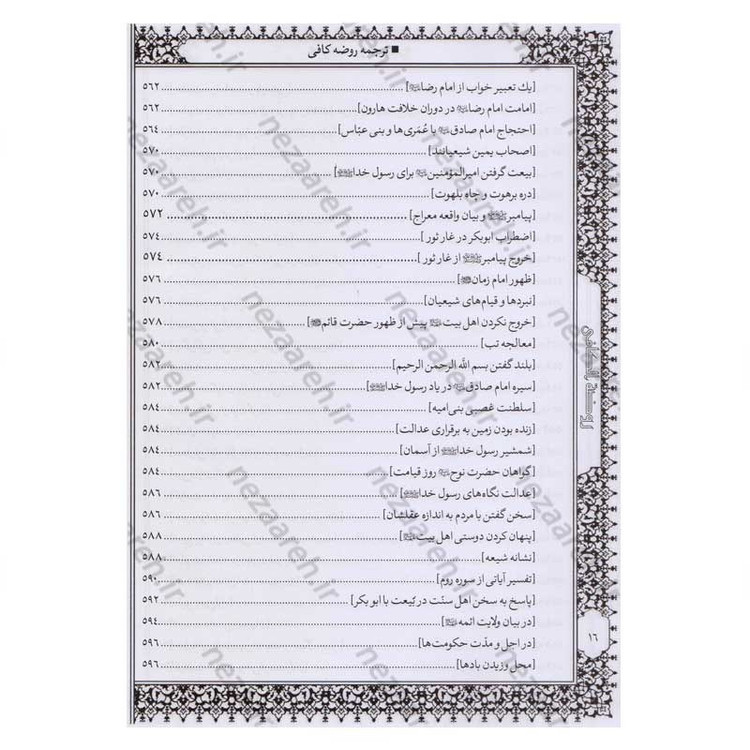 ■ ترجمه روضه کافی
[یک تعبیر خواب از امام رضا﷼] ... ۵۶۲
[امامت امام رضا در دوران خلافت هارون] ... ۵۶۲
[احتجاج امام صادق با عُمَری‌ها و بنی عبّاس] ... ۵۶۴
[اصحاب یمین شیعیانند] ... ۵۷۰
[بیعت گرفتن امیرالمؤمنین برای رسول خدا ﷺ] ... ۵۷۰
[دره برهوت و چاه بلهوت] ... ۵۷۰
[پیامبر ﷺ و بیان واقعه معراج] ... ۵۷۲
[اضطراب ابوبکر در غار ثور] ... ۵۷۴
[خروج پیامبر ﷺ از غار ثور] ... ۵۷۴
[ظهور امام زمان] ... ۵۷۶
[نبردها و قیام‌های شیعیان] ... ۵۷۶
[خروج نکردن اهل بیت پیش از ظهور حضرت قائم] ... ۵۷۸
[معالجه تب] ... ۵۸۰
[بلند گفتن بسم الله الرحمن الرحیم] ... ۵۸۲
[سیره امام صادق در یاد رسول خدا ﷺ] ... ۵۸۲
[سلطنت غصبی بنی‌امیه] ... ۵۸۴
[زنده بودن زمین به برقراری عدالت] ... ۵۸۴
[شمشیر رسول خدا ﷺ از آسمان] ... ۵۸۴
[گواهان حضرت نوح روز قیامت] ... ۵۸۴
[عدالت نگاه‌های رسول خدا ﷺ] ... ۵۸۶
[سخن گفتن با مردم به اندازه عقلشان] ... ۵۸۶
[پنهان کردن دوستی اهل بیت] ... ۵۸۸
[نشانه شیعه] ... ۵۸۸
[تفسیر آیاتی از سوره روم] ... ۵۹۰
[پاسخ به سخن اهل سنّت در بیعت با ابو بکر] ... ۵۹۲
[در بیان ولایت ائمه] ... ۵۹۴
[در اجل و مدّت حکومت‌ها] ... ۵۹۶
[محل وزیدن بادها] ... ۵۹۶
روضة الکافی
۱۶
nezaareh.ir